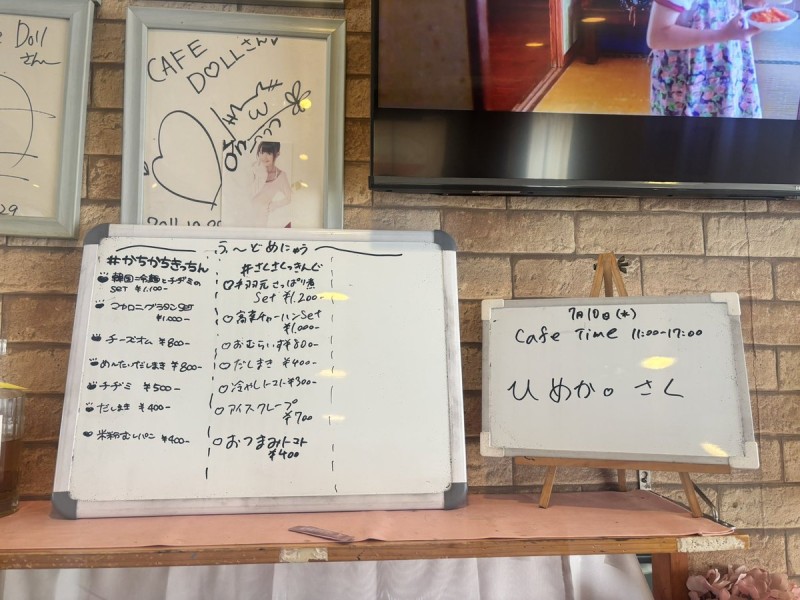 e Doll
さん
29
CAFE
DOLLさん
ふ〜どめにゅう
#かちかちきっちん
韓国冷麺とチヂミの
SET ¥1,100-
マカロニグラタンSET
¥1,000-
チーズオム ¥800-
めんたいだしまき ¥800-
チヂミ ¥500-
だしまき ¥400-
米粉むしパン ¥400-
#さくさくっきんぐ
手羽元さっぱり煮
Set ¥1,200-
高菜チャーハンSet
¥1,000-
おむらいす¥800-
だしまき ¥400-
冷やしトマト¥300-
アイスクレープ
¥700
おつまみトマト
¥400
7月10日(水)
Cafe Time 11:00-17:00
ひめか。さく